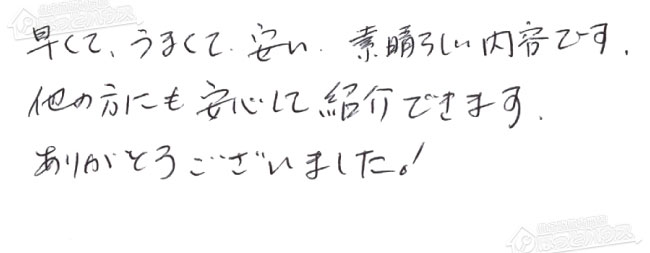 早くて、うまくて、安い、素晴らしい内容です。
他の方にも安心して紹介できます。
ありがとうございました。!